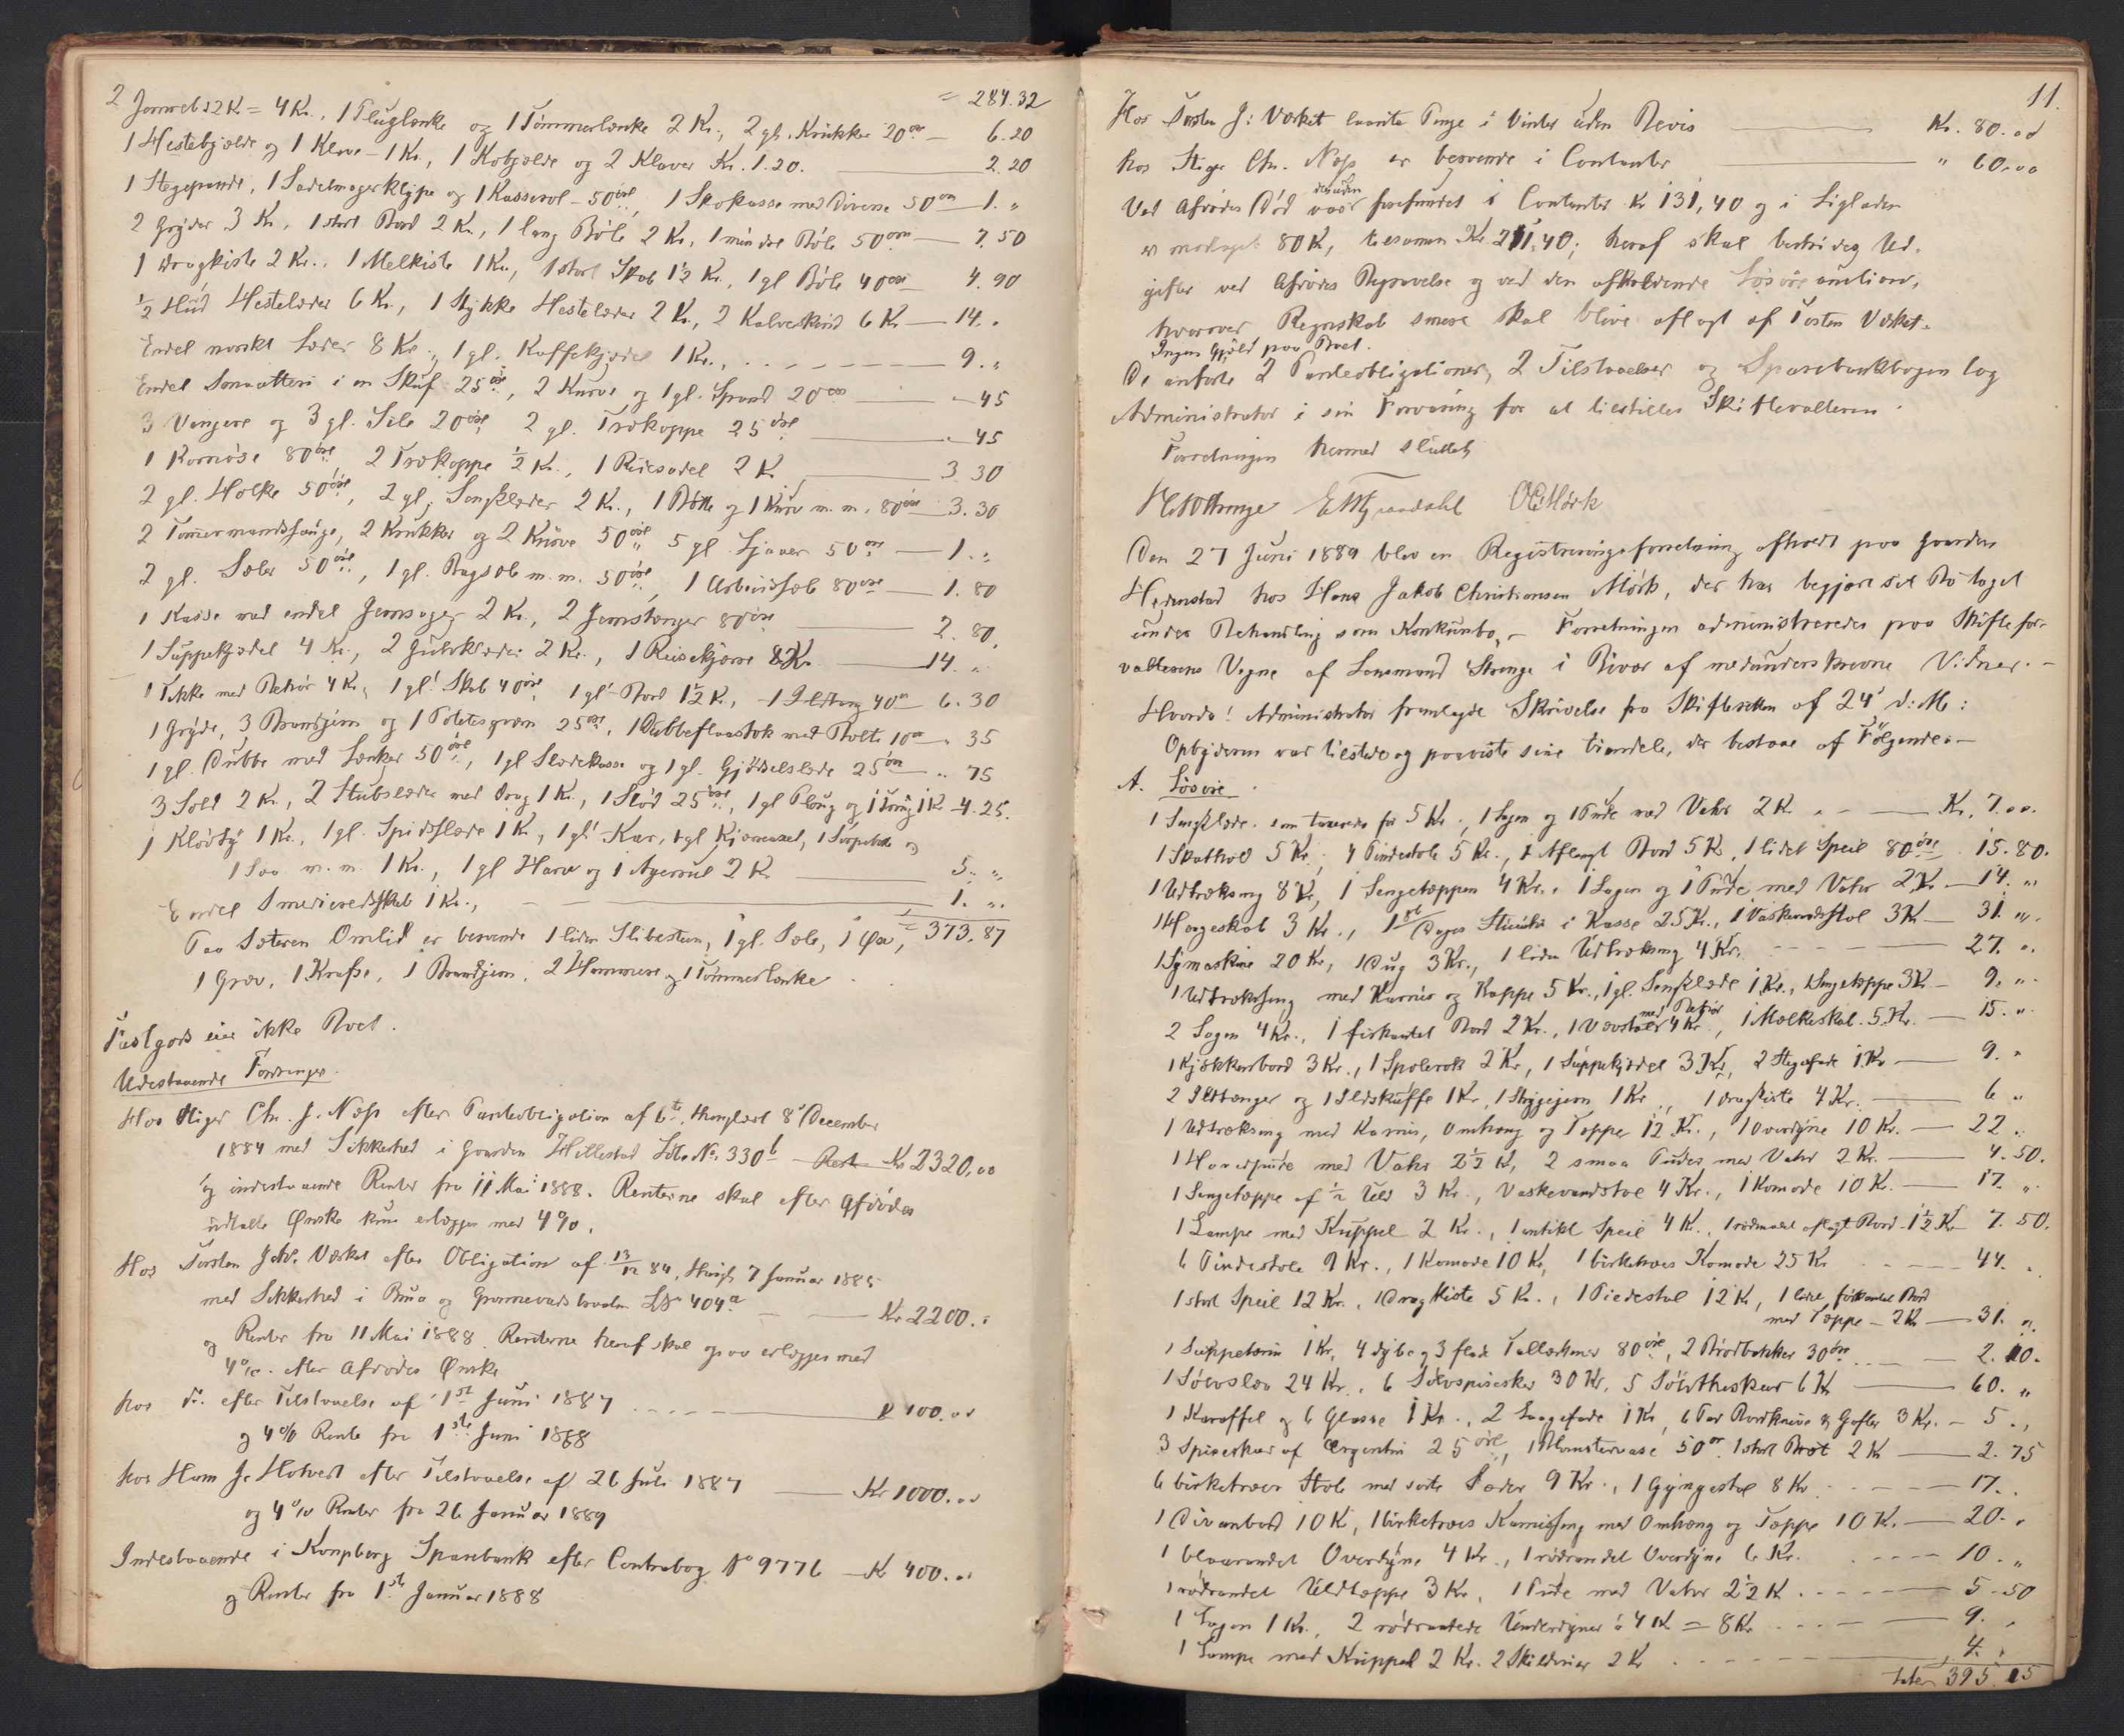 = 284.32
2 Jernveb à 2 K = 4 Kr., 1 Pluglænke og 1 Tømmerlænke 2 Kr., 2 gl. Krukker 20 øre — 6.20
1 Hestebjælde og 1 Klave - 1 Kr., 1 Kobjælde og 2 Klaver Kr. 1.20. 2.20
1 Stegepande, 1 Sadelmagerklype og 1 Kasserol - 50 øre, 1 Skokasse med Diverse 50 øre — 1. "
2 Gryder 3 Kr., 1 stort Bord 2 Kr., 1 lang Bøle 2 Kr., 1 mindre Bøle 50 øre — 7.50
1 Dragkiste 2 Kr., 1 Melkiste 1 Kr., 1 stort Skab 1½ Kr., 1 gl Bøle 40 øre 4.90
½ Hud Hestelæder 6 Kr., 1 Stykke Hestelæder 2 Kr., 2 Kalveskind 6 Kr — 14. "
Endel norskt Læder 8 Kr., 1 gl. Kaffekjedel 1 Kr., - - - 9. "
Endel Smaatteri i en Skuf 25 øre, 2 Kurve og 1 gl. Spand 20 øre — " 45
3 Vengere og 3 gl. Sele 20 øre 2 gl. Trækoppe 25 øre — " 45
1 Kornøse 80 øre, 2 Trækoppe ½ Kr., 1 Ridesadel 2 K. 3.30
2 gl. Holke 50 øre, 2 gl. Sengklæder 2 Kr., 1 Bøtte og 1 Kurv m. m. 80 øre 3.30
2 Tømmermandssauge, 2 Krukker og 2 Kurve 50 øre, 5 gl Ljaaer 50 øre — 1. "
2 gl. Sæler 50 øre, 1 gl. Bagsæle m. m. 50 øre, 1 Arbeidssæle 80 øre — 1.80
1 Kasse med endel Jernsager 2 Kr., 2 Jernstænger 80 øre 2.80.
1 Suppekjedel 4 Kr., 2 Gulvklæder 2 Kr., 1 Reisekjærre 8 Kr. — 14. "
1 Tikke med Behør 4 Kr., 1 gl. Skab 40 øre, 1 gl. Bord 1½ Kr., 1 Ildtang 40 ø 6.30
1 Gryde, 3 Brandjern og 1 Potetesgræv 25 øre, 1 Dubbeflaastok med Bolte 10 ø " 35
1 gl. Dubbe med Lænker 50 øre, 1 gl Slædekasse og 1 gl. Gjødselslæde 25 øre " 75
3 Sold 2 Kr., 2 Stubslæder med Drag 1 Kr., 1 Slød 25 øre, 1 gl Ploug og 1 Torung 1 Kr 4.25.
1 Kløvtÿ 1 Kr., 1 gl. Spidsslæde 1 K, 1 gl. Kar, 1 gl Kjærreaxel, 1 og
1 Saa m. m. 1 Kr., 1 gl Harv og 1 Ageraul 2 K 5. "
Endel Smedieredskab 1 Kr., 1. "
= 373.87
Paa Sæteren Omlid er beroende 1 liden Slibesteen, 1 gl. Sæle, 1 Øxe,
1 Græv, 1 Krafse, 1 Brandjern, 2 Hammere og 1 Tømmerlænke
Fastgods eier ikke Boet.
Udestaaende Fordringer.
Hos Stiger Chr. J. Næss efter Panteobligation af 6te, thinglæst 8de December
1884 med Sikkerhed i Gaarden Hellestad Løbe No. 330 b — Rest Kr 2320,00
og indestaaende Renter fra 11 Mai 1888. Renterne skal efter Afdødes
udtalte Ønske kun erlægges med 4%.
Hos Torsten Joh. Værket efter Obligation af 13/12 84, thingl. 7 Januar 1885
med Sikkerhed i Brua og Grønnevads LNo 404 a — Kr 2200. "
og Renter fra 11 Mai 1888. Renterne heraf skal ogsaa erlægges med
4%. efter Afdødes Ønske
hos do. efter Tilstaaelse af 1ste Juni 1887 K 100.00
og 4% Rente fra 1ste Juni 1888
hos Hans Jr. Holvert efter Tilstaaelse af 26 Juli 1887 — Kr 1000.00
og 4% Renter fra 26 Januar 1889
Indestaaende i Kongsberg Sparebank efter Contrabog No 9776 — Kr 400. "
og Renter fra 1ste Januar 1888
11.
Hos Torsten J. Værket laante Penge i Vinter uden Bevis — Kr. 80.00
hos Stiger Chr. Næss er beroende i Contanter — " 60.00
Ved Afdødes Død var desuden forefundet i Contanter Kr 131,40 og i Liglader
er modtaget 80 K, tilsammen Kr 211,40; heraf skal bestrides Ud-
gifter ved Afdødes Begravelse og ved den afholdende Løsøreauction,
hvorover Regnskab senere skal blive aflagt af Torsten Værket.
Ingen Gjæld paa Boet.
De anførte 2 Panteobligationer, 2 Tilstaaelser og Sparebankbogen tog
Administrator i sin Forvaring for at tilstilles Skifteretten.
Forretningen hermed sluttet
Den 27 Juni 1889 blev en Registreringsforretning afholdt paa Gaarden
Hedenstad hos Hans Jakob Christiansen Mørk, der har begjært sit Bo taget
under Behandling som Konkursbo. - Forretningen administreredes paa Skiftefor-
valterens Vegne af Lensmand Strenge i Bivær af medunderskrevne Vidner. -
Hvorda! Administrator fremlagde Skrivelse fra Skifteretten af 24de d: M:
Opbyderen var tilstede og paaviste sine Eiendele, der bestaar af Følgende: -
A. Løsøre.
1 Sengklæde som taxeredes for 5 Kr., 1 Lagen og 1 Pude med Vahr 2 K. — Kr. 7.00.
1 Skathol 5 Kr., 4 Pindestole 5 Kr., 1 Aflangt Bord 5 K, 1 lidet Speil 80 øre 15.80.
1 Udtræksseng 8 Kr, 1 Sengetæppe 4 Kr., 1 Lagen og 1 Pude med Vahr 2 K — 14. "
1 Hængeskab 3 Kr., 1 Dages Stueuhr i Kasse 25 Kr., 1 Vaskevandsstol 3 K — 31. "
1 Symaskine 20 Kr, 1 Dug 3 Kr., 1 liden Udtræksseng 4 Kr. 27. "
1 Udtræksseng med Karnis og Kappe 5 Kr., 1 gl. Sengklæde 1 Kr., 1 Sengetæppe 3 K — 9. "
2 Lagen 4 Kr., 1 firkantet Bord 2 Kr., 1 Vævstol med Behør 4 Kr., 1 Melkeskab 5 Kr. — 15. "
1 Kjøkkenbord 3 Kr., 1 Spolerok 2 Kr, 1 Suppekjedel 3 Kr, 2 Stegefade 1 Kr — 9. "
2 Ildtænger og 1 Ildskuffe 1 Kr, 1 Strygejern 1 Kr, 1 Dragkiste 4 Kr. — 6 "
1 Udtræksseng med Karnis, Omhæng og Tæppe 12 Kr., 1 Overdÿne 10 Kr. — 22 "
1 Hovedpude med Vahr 2½ K, 2 smaa Puder med Vahr 2 Kr. — 4.50.
1 Sengetæppe af ½ Uld 3 Kr., Vaskevandstol 4 Kr., 1 Komode 10 K. — 17. "
1 Lampe med Kuppel 2 Kr., 1 antikt Speil 4 K., 1 rødmalet aflagt Bord 1½ Kr 7.50.
6 Pindestole 9 Kr., 1 Komode 10 Kr, 1 birketræes Komode 25 Kr 44. "
1 stort Speil 12 Kr., 1 Dragkiste 5 Kr., 1 Piedestal 12 K, 1 lidet firkantet Bord
med Tæppe - 2 K — 31. "
1 Suppeterin 1 Kr, 4 dybe og 3 flade Tallerkener 80 øre, 2 Brødbakker 30 øre — 2.10.
1 Sølvslev 24 Kr., 6 Sølvspiseskeer 30 Kr, 5 Sølvtheskeer 6 K — 60. "
1 Karaffel og 6 Glasse 1 Kr., 2 Saagefade 1 Kr, 6 Par Bordknive og Gafler 3 Kr. — 5. "
3 Spiseskeer af Argentin 25 øre, 1 Blomstervase 50 ør. 1 stort Bræt 2 K — 2.75
6 birketræes Stole med sorte Sæder 9 Kr., 1 Gyngestol 8 Kr — 17. "
1 Divanbord 10 K, 1 birketræes Karnisseng med Omhæng og Tæppe 10 K. — 20. "
1 blaarandet Overdÿne 4 Kr., 1 rødrandet Overdÿne 6 Kr. 10. "
1 rødrandet Uldtæppe 3 Kr, 1 Pude med Vahr 2½ K. 5.50
1 Lagen 1 Kr., 2 rødrandede Underdyner à 4 K = 8 Kr. 9. "
1 Lampe med Kuppel 2 Kr. 2 Skilderier 2 Kr 4. "
Later 395.15